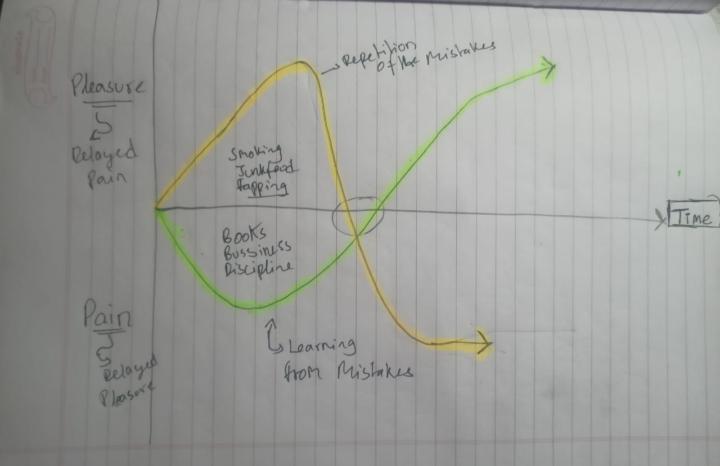 Pleasure
Delayed
Pain
Repetition
of the Mistakes
Smoking
Junkfood
Fapping
Time
Books
Bussiness
Discipline
Pain
Delayed
Pleasure
Learning
from Mistakes